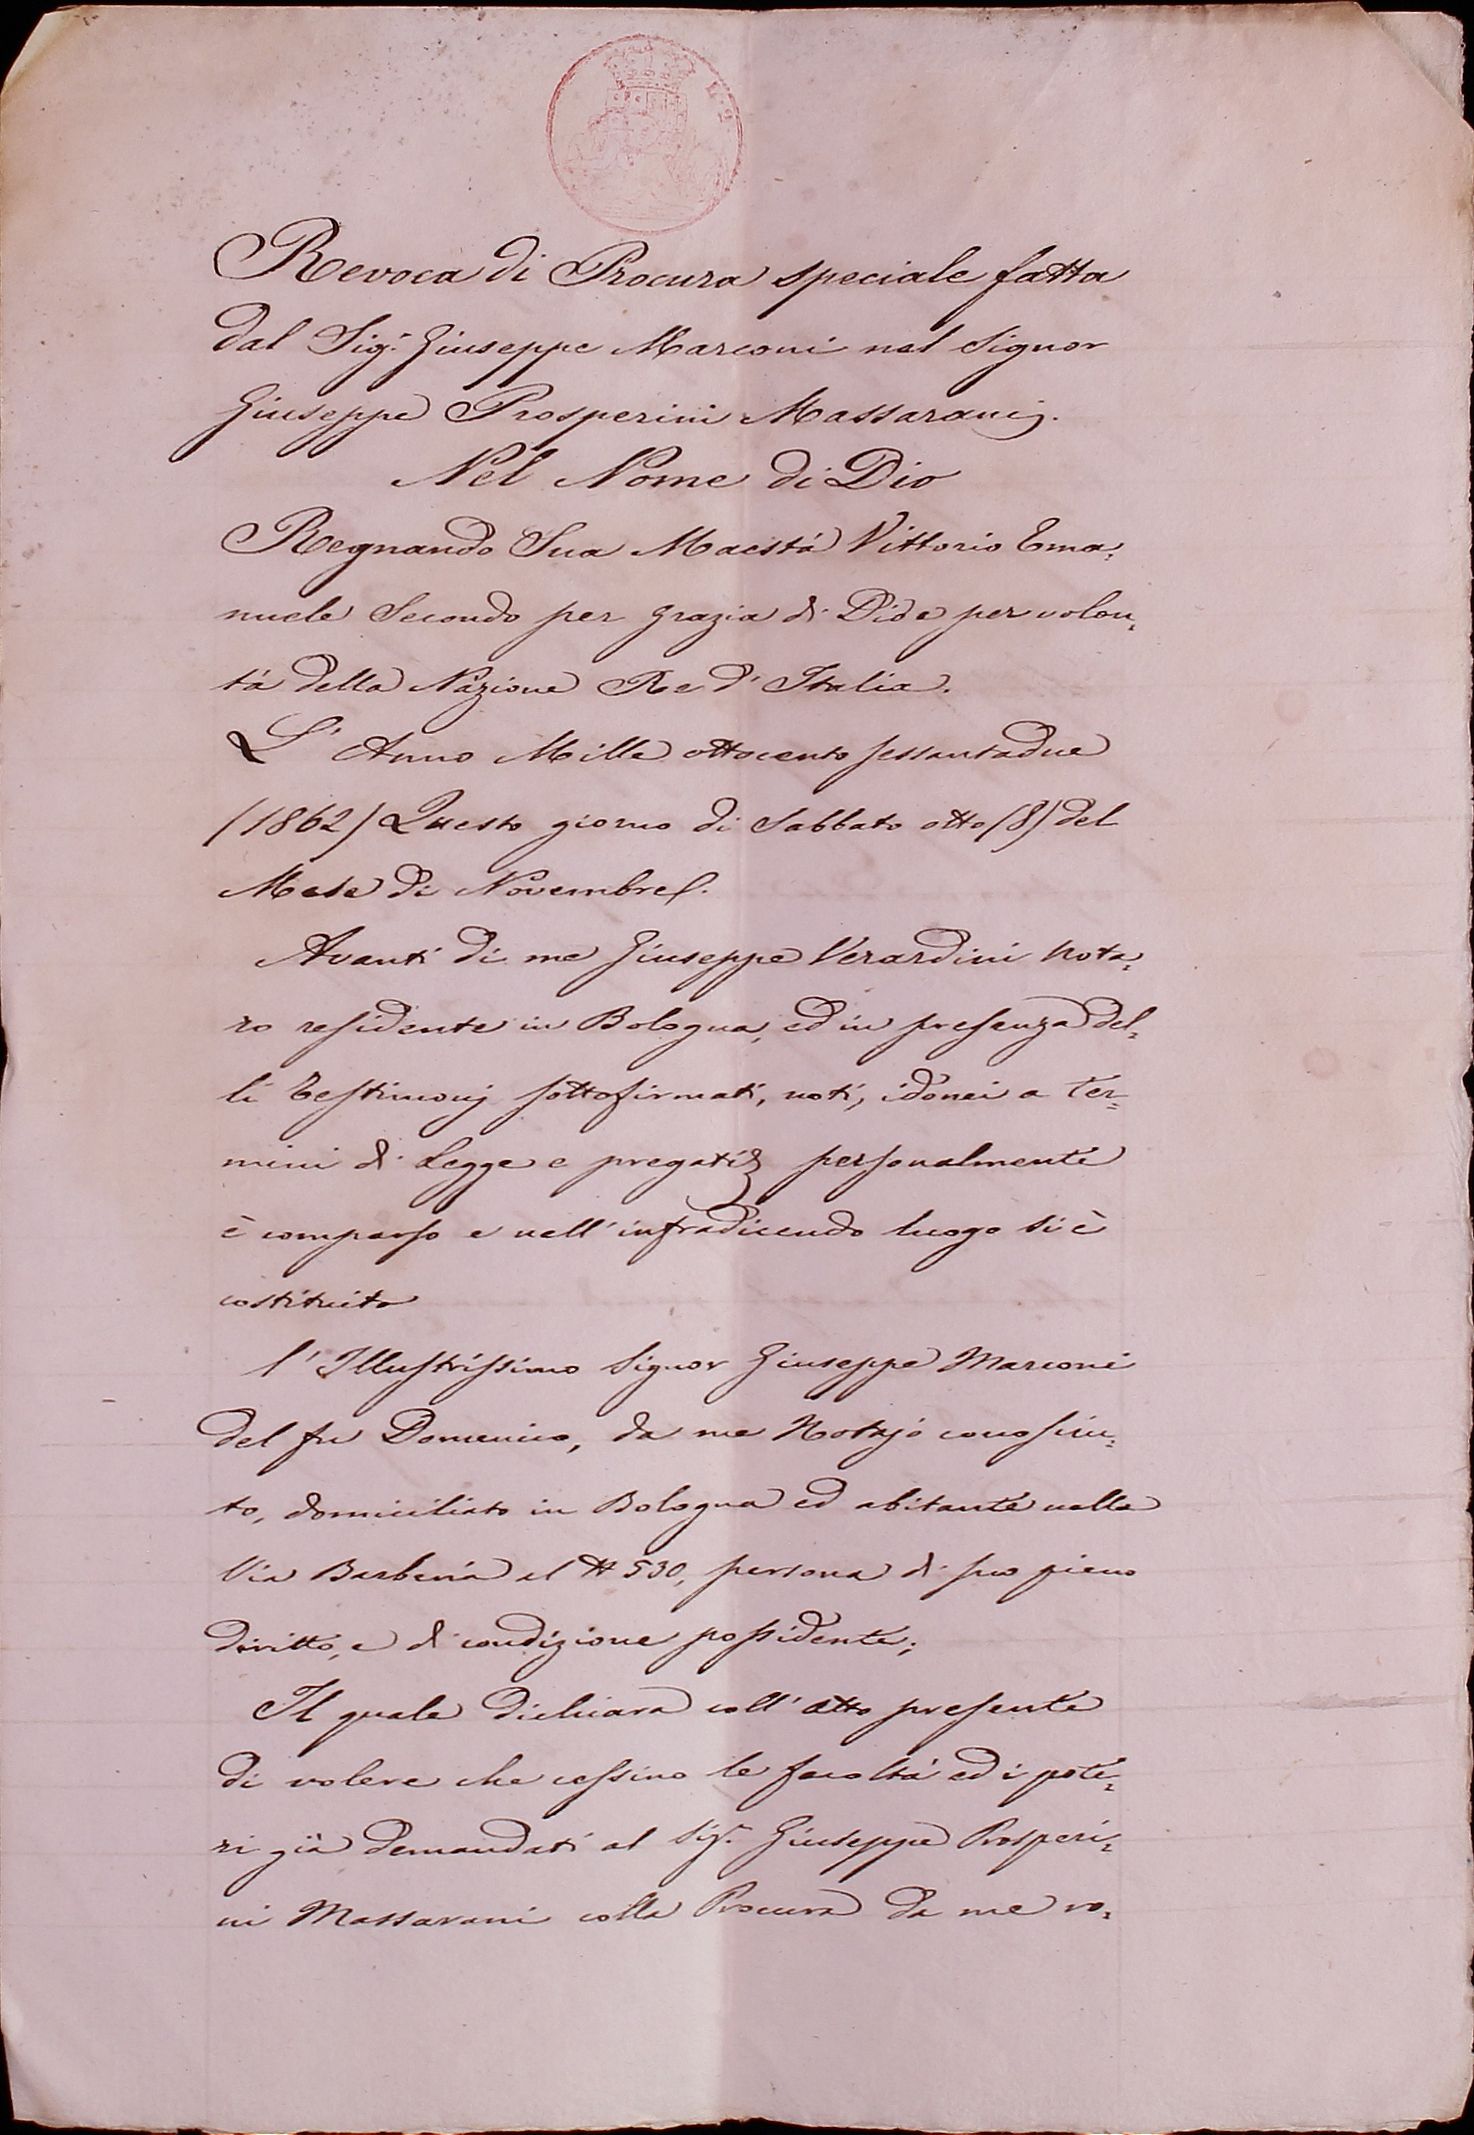 Revoca di Procura speciale fatta
dal Sig.r Giuseppe Marconi nel Signor
Giuseppe Prosperini Massarani.
Nel Nome di Dio
Regnando Sua Maestá Vittorio Ema=
nuele Secondo per grazia di Dio e per volon=
tá della Nazione Re d'Italia.
L'Anno Mille ottocento sessantadue
(1862) Questo giorno di Sabbato otto (8) del
Mese di Novembre.
Avanti di me Giuseppe Verardini Nota=
ro residente in Bologna, ed in presenza del=
li Testimonj sottofirmati, noti, idonei a ter=
mini di Legge e pregati, personalmente
è comparso e nell'infradicendo luogo si è
costituito
l'Illustrissimo Signor Giuseppe Marconi
del fu Domenico, da me Notajo conosciu=
to, domiciliato in Bologna ed abitante nella
Via Barberia al N 530, persona di suo pieno
diritto, e di condizione possidente;
Il quale dichiara coll'atto presente
di volere che cessino le facoltá ed i pote=
ri giá demandati al Sig.r Giuseppe Prosperi=
ni Massarani colla Procura da me ro=